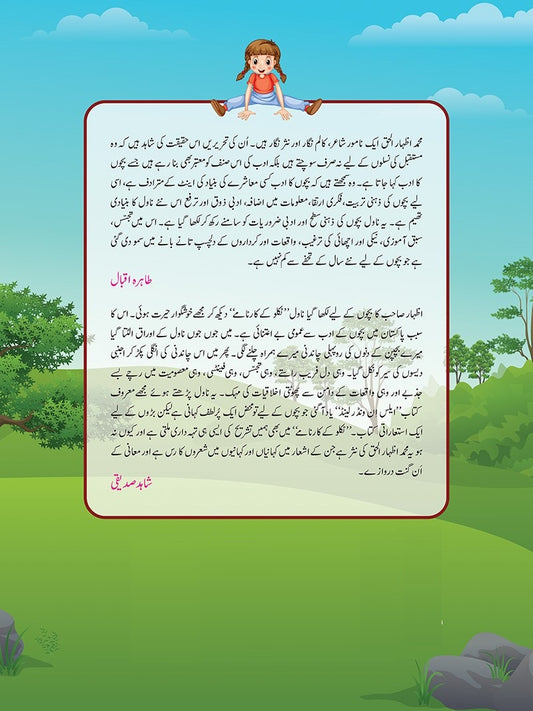 محمد اظہار الحق ایک نامور شاعر، کالم نگار اور نثر نگار ہیں۔ اُن کی تحریریں اس حقیقت کی شاہد ہیں کہ وہ
مستقبل کی نسلوں کے لیے نہ صرف سوچتے ہیں بلکہ ادب کی اس صنف کو معتبر بھی بنا رہے ہیں جسے بچوں
کا ادب کہا جاتا ہے۔ وہ سمجھتے ہیں کہ بچوں کا ادب کسی معاشرے کی بنیاد کی اینٹ کے مترادف ہے، اسی
لیے بچوں کی ذہنی تربیت، فکری ارتقا، معلومات میں اضافہ، ادبی ذوق اور ترفع اس نئے ناول کا بنیادی
تھیم ہے۔ یہ ناول بچوں کی ذہنی سطح اور ادبی ضروریات کو سامنے رکھ کر لکھا گیا ہے۔ اس میں تجسس،
سبق آموزی، نیکی اور اچھائی کی ترغیب، واقعات اور کرداروں کے دلچسپ تانے بانے میں سمو دی گئی
ہے جو بچوں کے لیے نئے سال کے تحفے سے کم نہیں ہے۔
طاہرہ اقبال
اظہار صاحب کا بچوں کے لیے لکھا گیا ناول ”ٹکلو کے کارنامے“ دیکھ کر مجھے خوشگوار حیرت ہوئی۔ اس کا
سبب پاکستان میں بچوں کے ادب سے عمومی بے اعتنائی ہے۔ میں جوں جوں ناول کے اوراق الٹتا گیا
میرے بچپن کے دنوں کی روپہلی چاندنی میرے ہمراہ چلنے لگی۔ پھر میں اس چاندنی کی انگلی پکڑ کر اجنبی
دیسوں کی سیر کو نکل گیا۔ وہی دل فریب راستے، وہی تجسس، وہی فینٹسی، وہی معصومیت میں رچے بسے
جذبے اور وہی واقعات کے دامن سے پھوٹتی اخلاقیات کی مہک۔ یہ ناول پڑھتے ہوئے مجھے معروف
کتاب ”ایلس ان ونڈر لینڈ“ یاد آ گئی جو بچوں کے لیے تو محض ایک پُر لطف کہانی ہے لیکن بڑوں کے لیے
ایک استعاراتی کتاب۔ ”ٹکلو کے کارنامے“ میں بھی ہمیں تشریح کی ایسی ہی تہہ داری ملتی ہے اور کیوں نہ
ہو یہ محمد اظہار الحق کی نثر ہے جن کے اشعار میں کہانیاں اور کہانیوں میں شعروں کا رس ہے اور معانی کے
اَن گنت دروازے۔
شاہد صدیقی